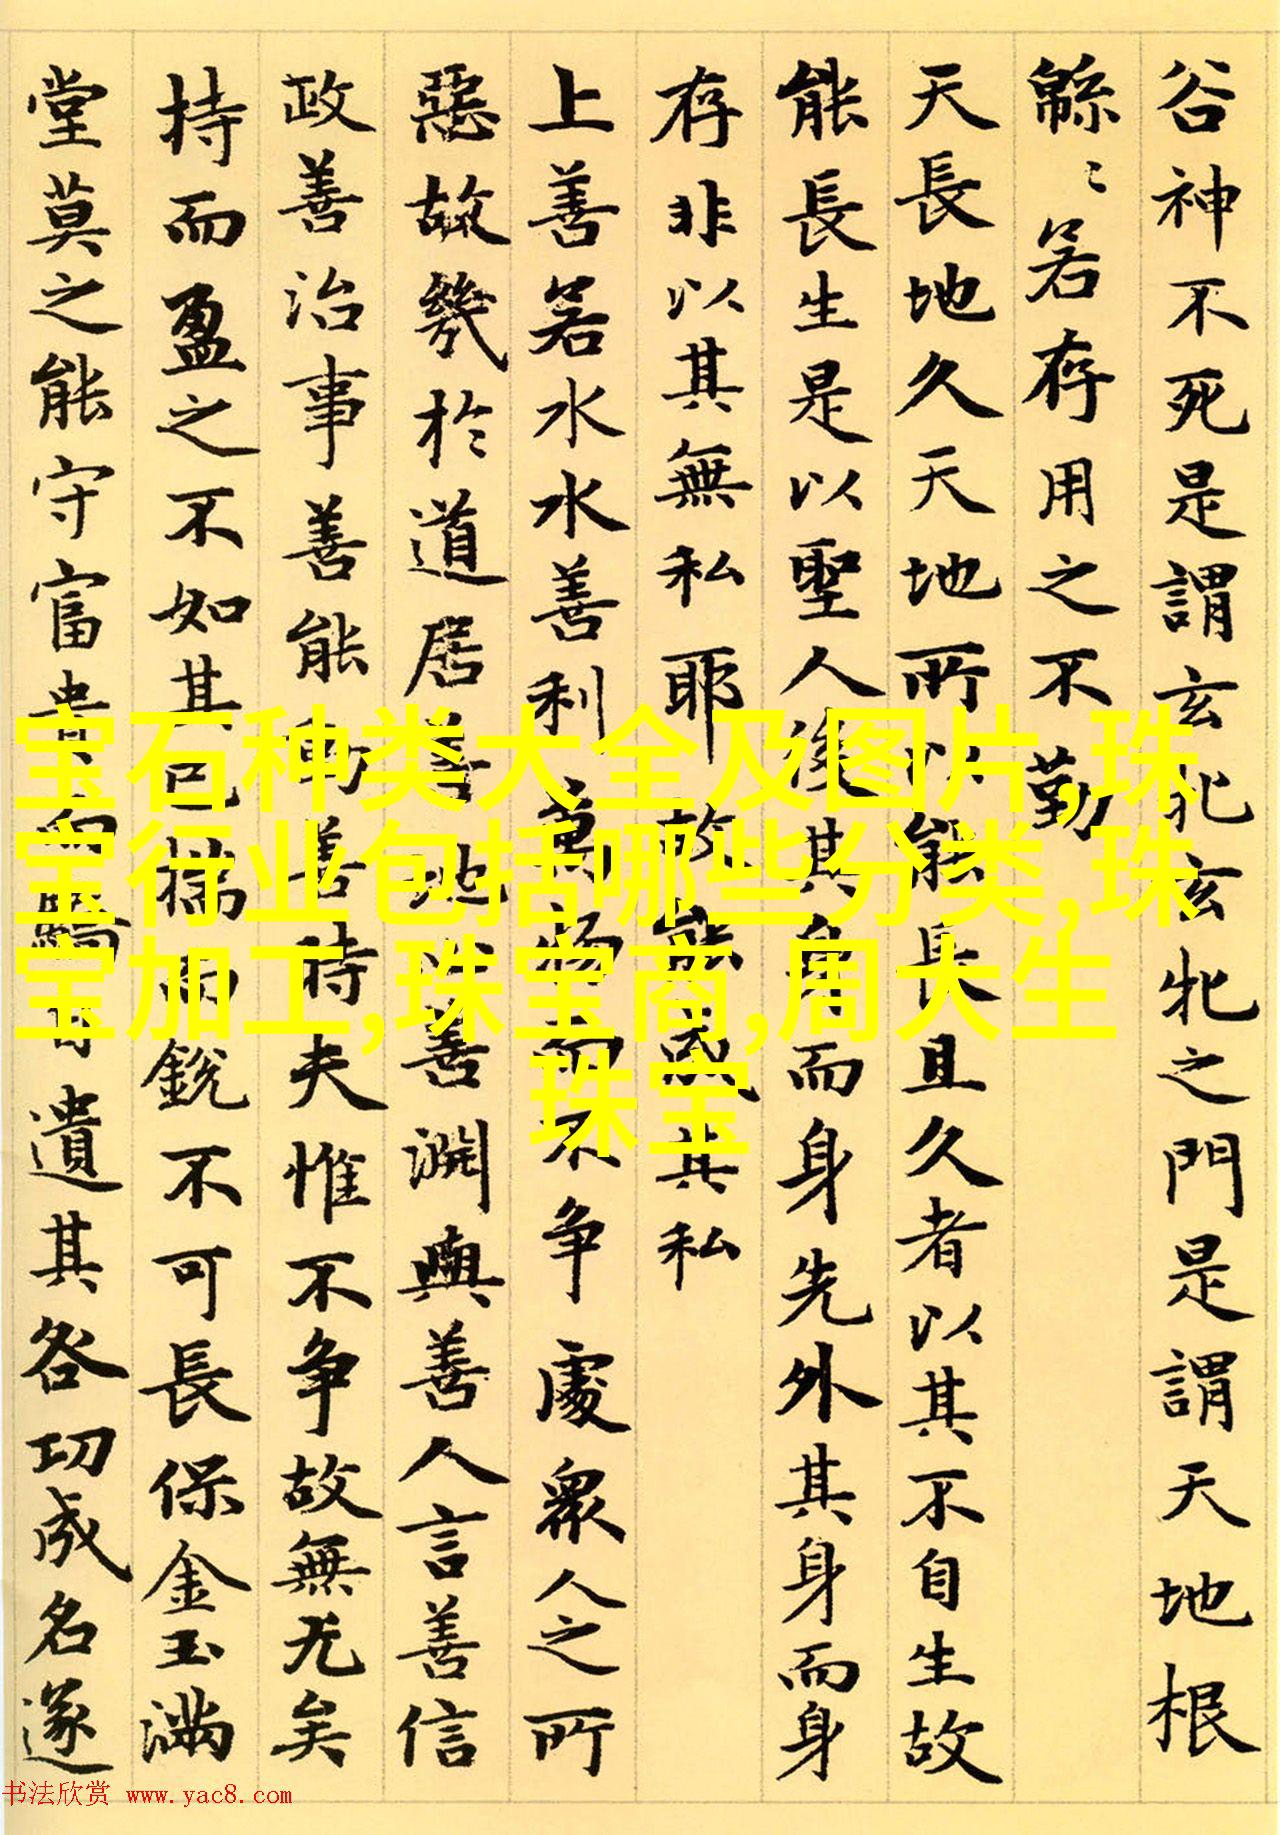 谷神不死是謂玄牝玄牝之門是謂天地根
緜〻若存用之不勤
天長地久天地所以能長且久者以其不自生故
能長生是以聖人後其身而身先外其身而身
存非以其無私耶故能成其私
上善若水水善利萬物而不争處衆人之所
惡故幾於道居善地心善淵與善人言善信
政善治事善能動善時夫惟不争故無尤矣
持而盈之不如其已揣而銳不可長保金玉滿
堂莫之能守富貴而驕自遺其咎功成名遂
宝石种类大全及图片,珠
宝行业包括哪些分类,珠
宝加工,珠宝商,周大生
珠宝
书法欣赏 www.yac8.com